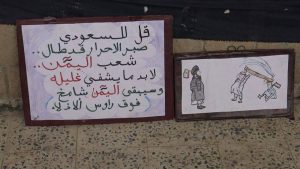 قل للسعودي
صبر الاحرار قد طال..
شعب اليمن..
لابد ما يشفي غليله
وسيبقى اليمن شامخ
فوق راوس